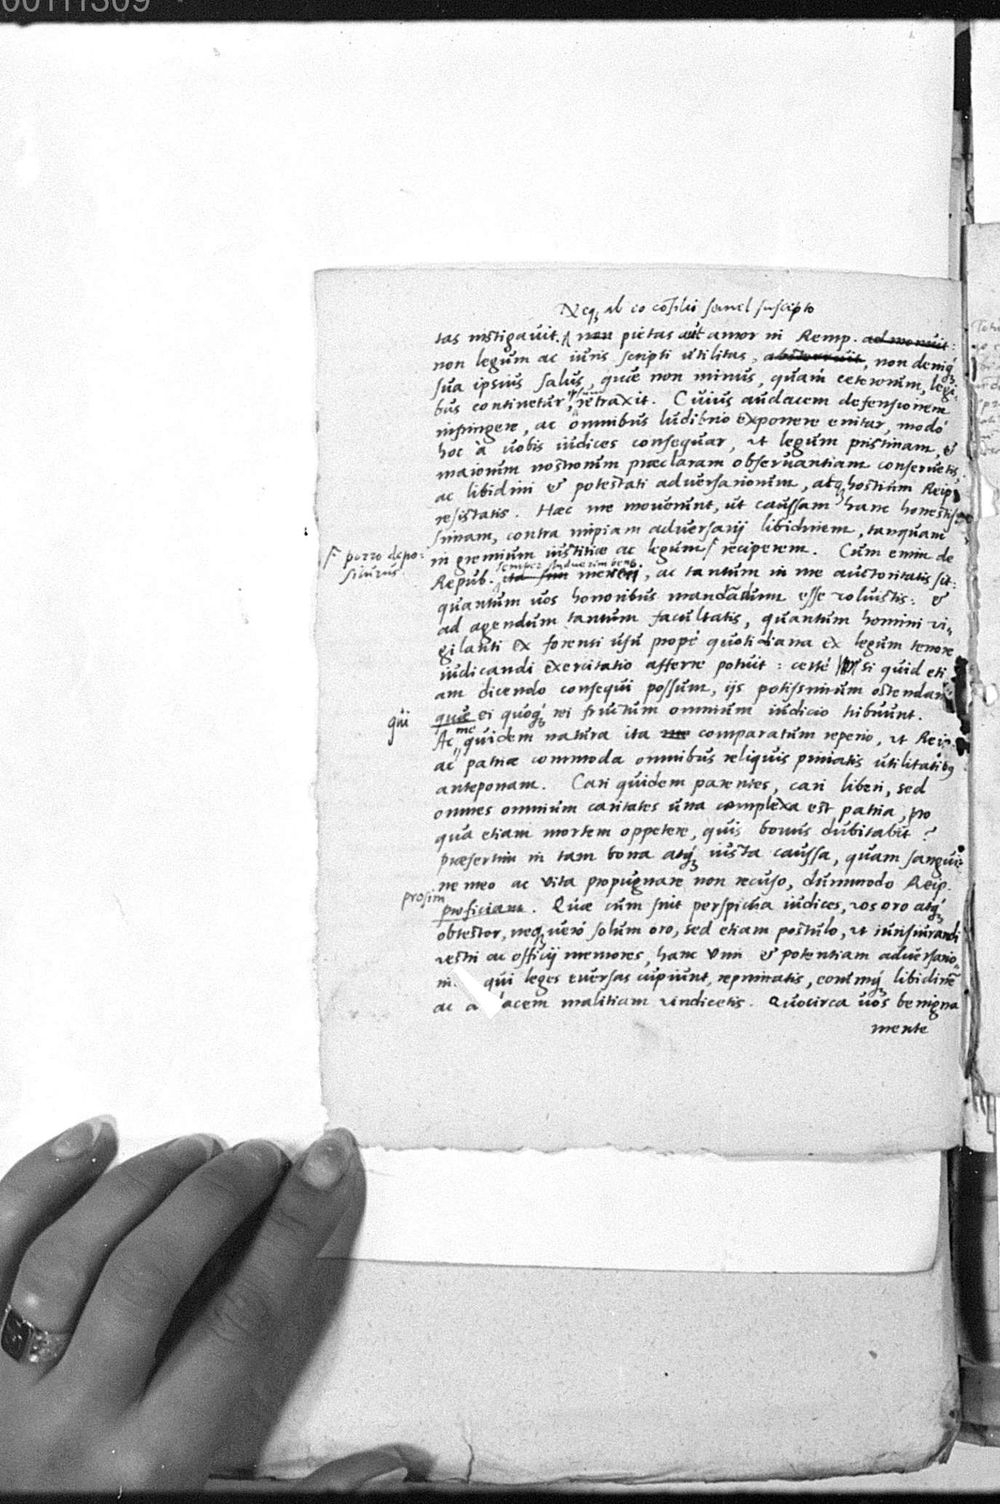 00111309
Neq; ab eo cõsilio semel suscepto
tas instigavit. non pietas aut amor in Remp. admonuit:
non legum ac iuris scripti utilitas, absterruit, non deniq;
sua ipsius salus, quae non minus, quam ceterorum, legi-
bus continetur, ipsum retraxit. Cuius audacem defensionem
infringere, ac omnibus ludibrio exponere enitar, modo
hoc à vobis iudices consequar, ut legum pristinam, &
maiorum nostrorum praeclaram observantiam conservetis,
ac libidini & potestati adversariorum, atq; hostium Reip.
resistatis. Haec me moverunt, ut caussam hanc honestis-
simam, contra impiam adversarij libidinem, tanquam
in gremium iustitiae ac legum reciperem. Cum enim de
porro depo-
siturus
Repub. semper studuerim bene mereri, ac tantum in me auctoritatis sit:
quantum vos honoribus mandãdum esse voluistis: &
ad agendum tantum facultatis, quantum homini vi-
gilanti ex forensi usu propè quotidiana ex legum tenore
iudicandi exercitatio afferre potuit: certè si quid eti
am dicendo consequi possum, ijs potissimum ostendam
qui
quae ei quoq; rei fructum omnium iudicio tribuunt.
Ac me quidem natura ita me comparatum reperio, ut Reip.
ac patriae commoda omnibus reliquis privatis utilitatibq
anteponam. Cari quidem parentes, cari liberi, sed
omnes omnium caritates una complexa est patria, pro
qua etiam mortem oppetere, quis bonus dubitabit?
praesertim in tam bona atq; iusta caussa, quam sangui-
ne meo ac vita propugnare non recuso, dummodo Reip.
prosim
proficiam. Quae cum sint perspicua iudices, vos oro atq;
obtestor, neq; verò solum oro, sed etiam postulo, ut iurisiurandi
vestri ac officij memores, hanc vim & potentiam adversario-
qui leges eversas cupiunt, reprimatis, eorumq; libidinẽ
ac malitiam vindicetis. Quocirca vos benigna
mente